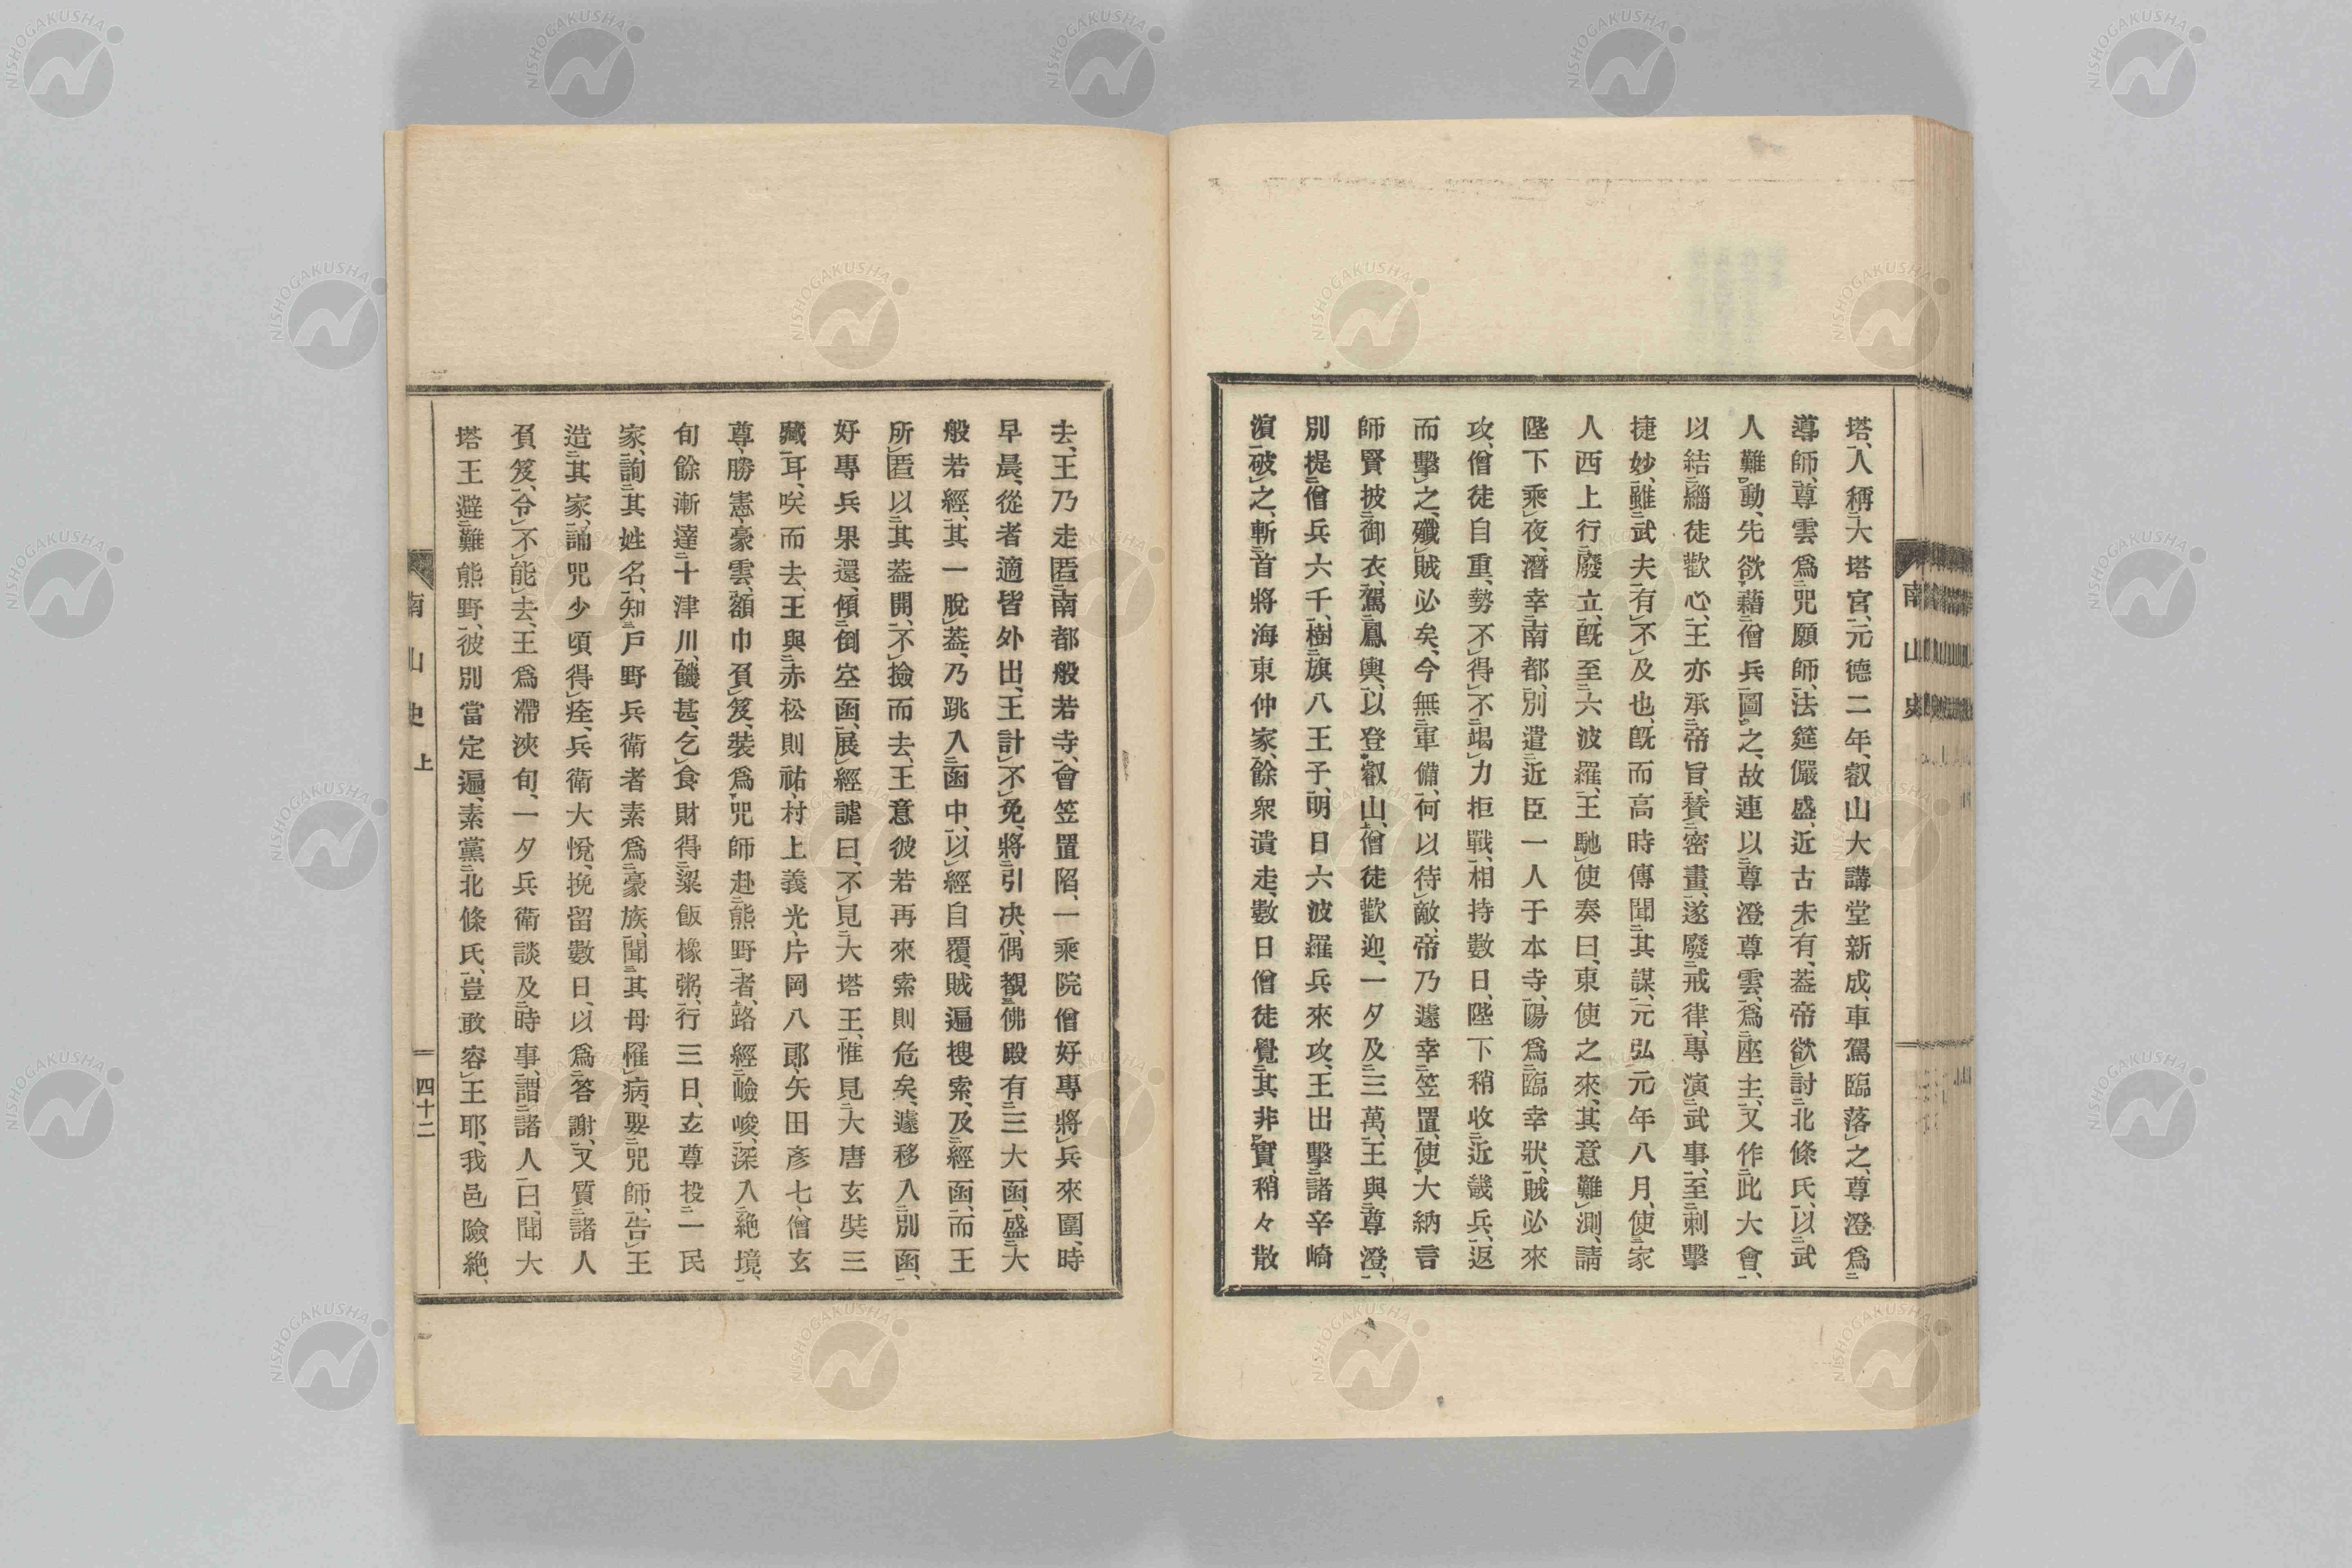 塔、人稱大塔宮、元德二年、叡山大講堂新成、車駕臨落之、尊澄爲
導師、尊雲爲咒願師、法筵儼盛、近古未有、蓋帝欲討北條氏、以武
人難動、先欲藉僧兵圖之、故連以尊澄尊雲、爲座主、又作此大會、
以結緇徒歡心、王亦承帝旨、贊密畫、遂廢戒律、專演武事、至刺擊
捷妙、雖武夫有不及也、既而高時傳聞其謀、元弘元年八月、使家
人西上行廢立、既至六波羅、王馳使奏曰、東使之來、其意難測、請
陛下乘夜、潛幸南都、別遣近臣一人于本寺、陽爲臨幸狀、賊必來
攻、僧徒自重、勢不得不竭力拒戰、相持數日、陛下稍收近畿兵、返
而擊之、殲賊必矣、今無軍備、何以待敵、帝乃遽幸笠置、使大納言
師賢披御衣、駕鳳輿、以登叡山、僧徒歡迎、一夕及三萬、王與尊澄、
別提僧兵六千、樹旗八王子、明日六波羅兵來攻、王出擊諸辛崎
濵、破之、斬首將海東仲家、餘衆潰走、數日僧徒覺其非實、稍々散
南山史
去、王乃走匿南都般若寺、會笠置陷、一乘院僧好專將兵來圍、時
早晨、從者適皆外出、王計不免、將引决、偶覩佛殿有三大函、盛大
般若經、其一脫蓋、乃跳入函中、以經自覆、賊遍搜索、及經函、而王
所匿以其蓋開、不撿而去、王意彼若再來索則危矣、遽移入別函、
好專兵果還、傾倒空函、展經謔曰、不見大塔王、惟見大唐玄奘三
藏耳、咲而去、王與赤松則祐、村上義光、片岡八郎、矢田彥七、僧玄
尊、勝憲、豪雲、額巾負笈、裝爲咒師赴熊野者、路經嶮峻、深入絶境、
旬餘漸達十津川、饑甚、乞食財得粱飯橡粥、行三日、玄尊投一民
家、詢其姓名、知戶野兵衛者素爲豪族、聞其母罹病、要咒師、告王
造其家、誦咒少頃、得痊、兵衛大悅、挽留數日、以爲答謝、又質諸人
負笈、令不能去、王爲滯浹旬、一夕兵衛談及時事、謂諸人曰、聞大
塔王避難熊野、彼別當定遍、素黨北條氏、豈敢容王耶、我邑險絶、
南山史 上 四十二
NISHOGAKUSHA